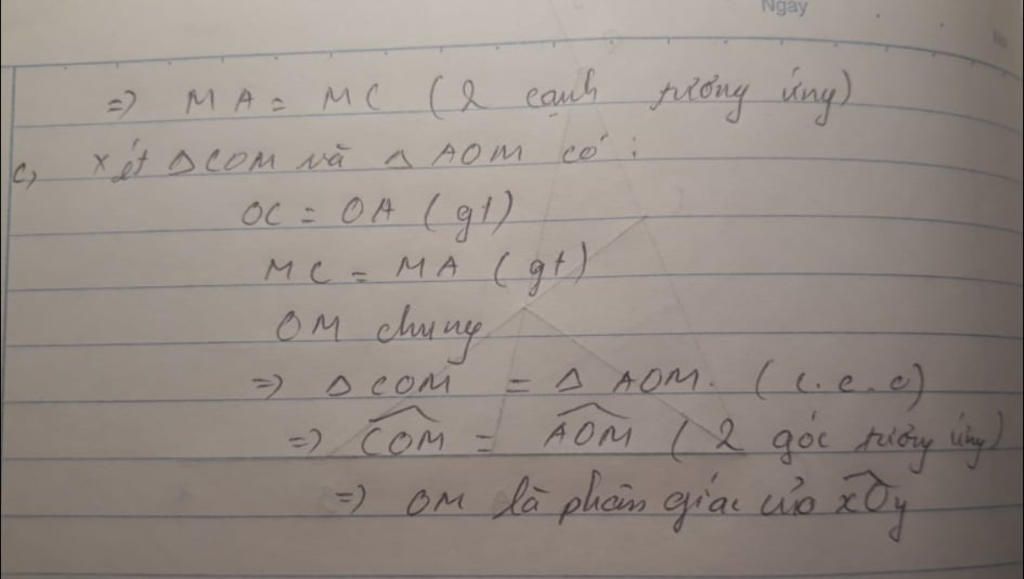 Ngày
=> MA = MC (2 cạnh tương ứng)
c, xét △COM và △AOM có :
OC = OA (gt)
MC = MA (gt)
OM chung
=> △COM = △AOM. (c.c.c)
=> \widehat{COM} = \widehat{AOM} (2 góc tương ứng)
=> OM là phân giác của \widehat{xOy}